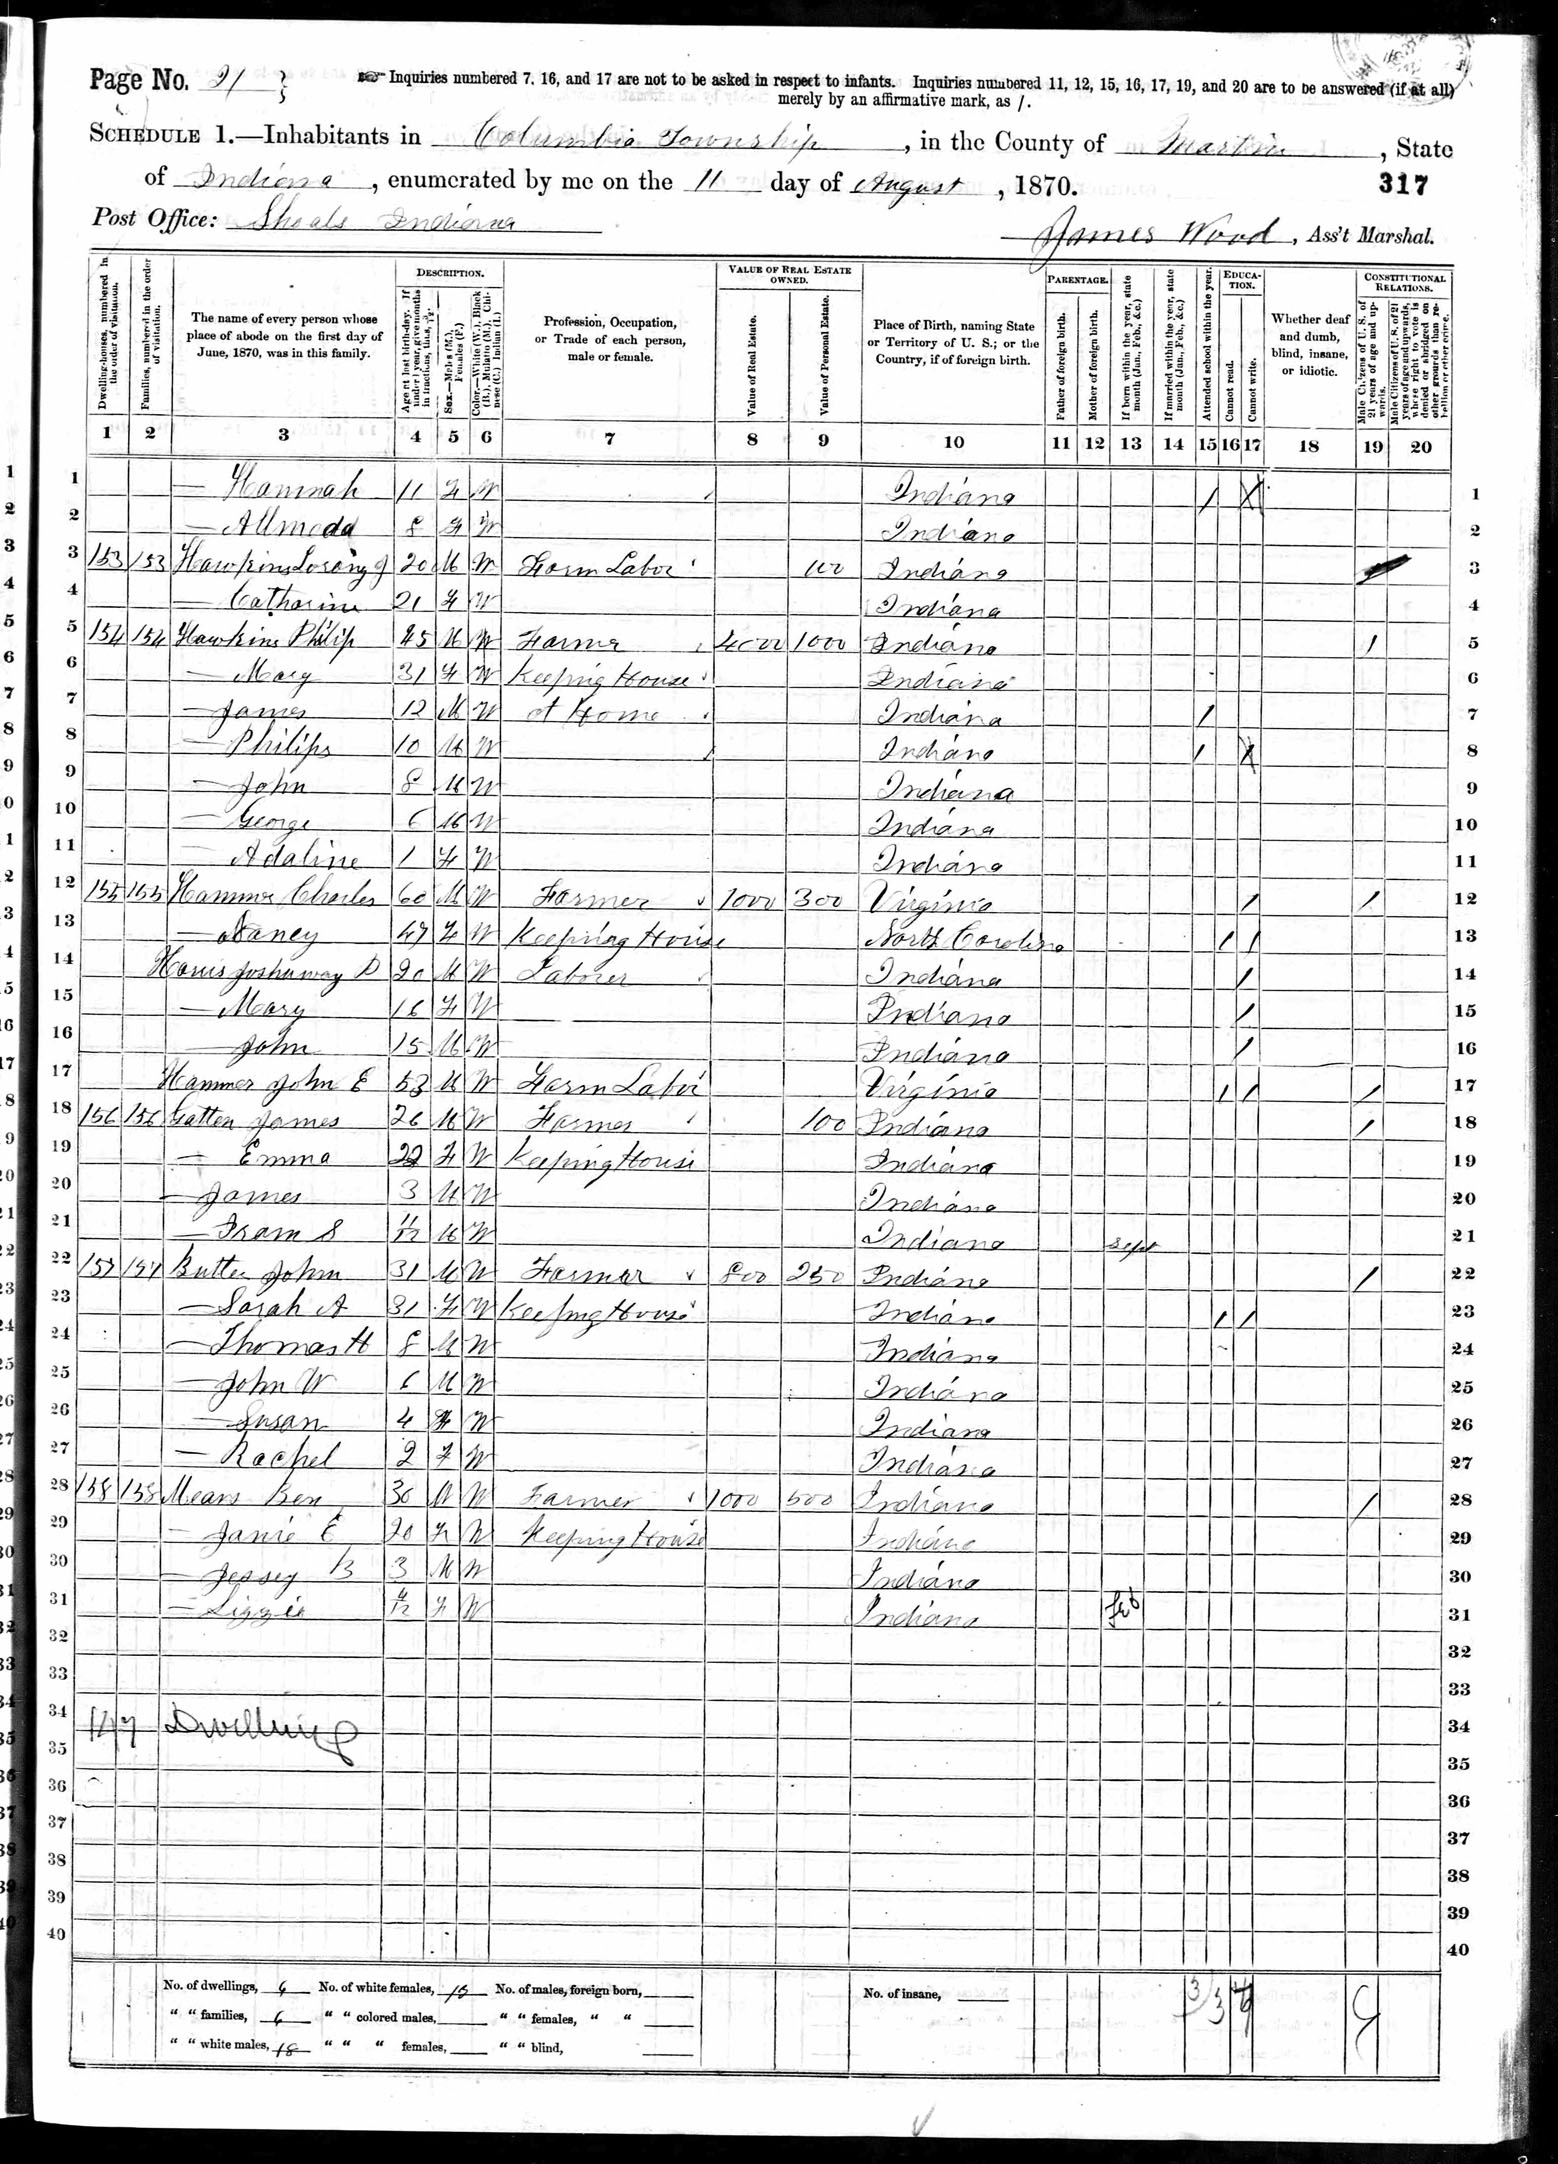 Page No. 21
Inquiries numbered 7, 16, and 17 are not to be asked in respect to infants. Inquiries numbered 11, 12, 15, 16, 17, 19, and 20 are to be answered (if at all) merely by an affirmative mark, as /.
SCHEDULE 1.—Inhabitants in Columbia Township, in the County of Martin, State
of Indiana, enumerated by me on the 11 day of August, 1870.
317
Post Office: Shoals Indiana
James Wood, Ass't Marshal.
Dwelling-houses, numbered in the order of visitation.
Families, numbered in the order of visitation.
The name of every person whose place of abode on the first day of June, 1870, was in this family.
DESCRIPTION.
Age at last birth-day. If under 1 year, give months in fractions, thus, 3/12.
Sex.—Males (M.), Females (F.)
Color.—White (W.), Black (B.), Mulatto (M.), Chinese (C.) Indian (I.)
Profession, Occupation, or Trade of each person, male or female.
VALUE OF REAL ESTATE OWNED.
Value of Real Estate.
Value of Personal Estate.
Place of Birth, naming State or Territory of U. S.; or the Country, if of foreign birth.
PARENTAGE.
Father of foreign birth.
Mother of foreign birth.
If born within the year, state month (Jan., Feb., &c.)
If married within the year, state month (Jan., Feb., &c.)
Attended school within the year.
EDUCATION.
Cannot read.
Cannot write.
Whether deaf and dumb, blind, insane, or idiotic.
CONSTITUTIONAL RELATIONS.
Male Citizens of U. S. of 21 years of age and upwards.
Male Citizens of U. S. of 21 years of age and upwards, whose right to vote is denied or abridged on other grounds than rebellion or other crime.
1 2 3 4 5 6 7 8 9 10 11 12 13 14 15 16 17 18 19 20
1 — Hannah 11 F W Indiana / 1
2 — Allmeda 8 F W Indiana 2
3 153 153 Hawkins J 20 M W Farm Labor 100 Indiana 3
4 — Catharine 21 F W Indiana 4
5 154 154 Hawkins Philip 45 M W Farmer 4000 1000 Indiana / 5
6 — Mary 31 F W Keeping House Indiana 6
7 — James 12 M W at Home Indiana / 7
8 — Philips 10 M W Indiana / 8
9 — John 8 M W Indiana 9
10 — George 6 M W Indiana 10
11 — Adaline 1 F W Indiana 11
12 155 155 Hammer Charles 60 M W Farmer 1000 300 Virginia / / 12
13 — Nancy 47 F W Keeping House North Carolina / / 13
14 Joshuway D 20 M W Laborer Indiana / 14
15 — Mary 16 F W Indiana / 15
16 — John 15 M W Indiana / 16
17 Hammer John E 53 M W Farm Labor Virginia / / / 17
18 156 156 Gatten James 26 M W Farmer 100 Indiana / 18
19 — Emma 22 F W Keeping House Indiana 19
20 — James 3 M W Indiana 20
21 — S 11/12 M W Indiana Sept 21
22 157 157 Butler John 31 M W Farmer 800 250 Indiana / 22
23 — Sarah A 31 F W Keeping House Indiana / / 23
24 — Thomas H 8 M W Indiana 24
25 — John W 6 M W Indiana 25
26 — Susan 4 F W Indiana 26
27 — Rachel 2 F W Indiana 27
28 158 158 Means Ben 30 M W Farmer 1000 500 Indiana / 28
29 — Janie E 20 F W Keeping House Indiana 29
30 — Jessey B 3 M W Indiana 30
31 — Lizzie /12 F W Indiana Feb 31
32 32
33 33
34 147 Dwelling 34
35 35
36 36
37 37
38 38
39 39
40 40
No. of dwellings, 6 No. of white females, 13 No. of males, foreign born, No. of insane,
" " families, 6 " " colored males, " " females, " "
" " white males, 18 " " " females, " " blind,